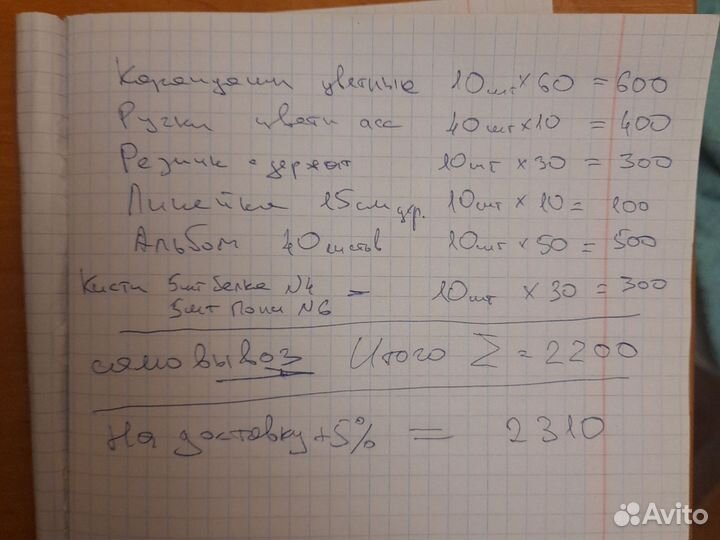 Карандаши цветные 10шт x 60 = 600
Ручки цветн асс 40шт x 10 = 400
Резинк - держат 10шт x 30 = 300
Линейка 15см дер. 10шт x 10 = 100
Альбом 40 листов 10шт x 50 = 500
Кисти 5шт Белка N4 - 10шт x 30 = 300
5шт Пони N6
самовывоз Итого Σ = 2200
На доставку +5% = 2310
Avito